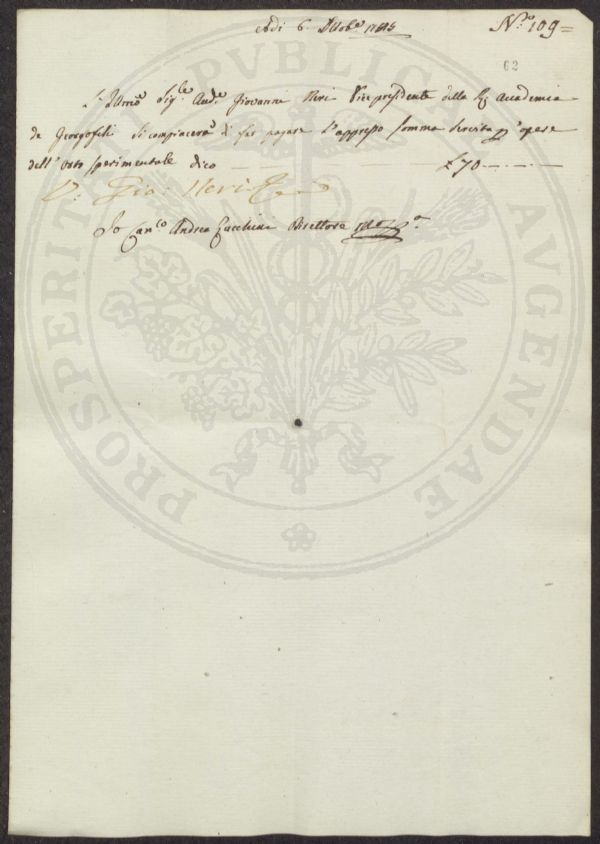 Adì 6. Ottobre
N.° 109=
62
L'Illmo Sig.re Aud.e Giovanni Neri Vice presidente della R. Accademia
de Georgofili si compiacerà di far pagare l'appresso somma servita p. opese
dell'Orto sperimentale dico
£ 70
V. Gio: Neri
Io Can.co Andrea Zucchini Direttore
PROSPERITATI PUBLICAE AVGENDAE